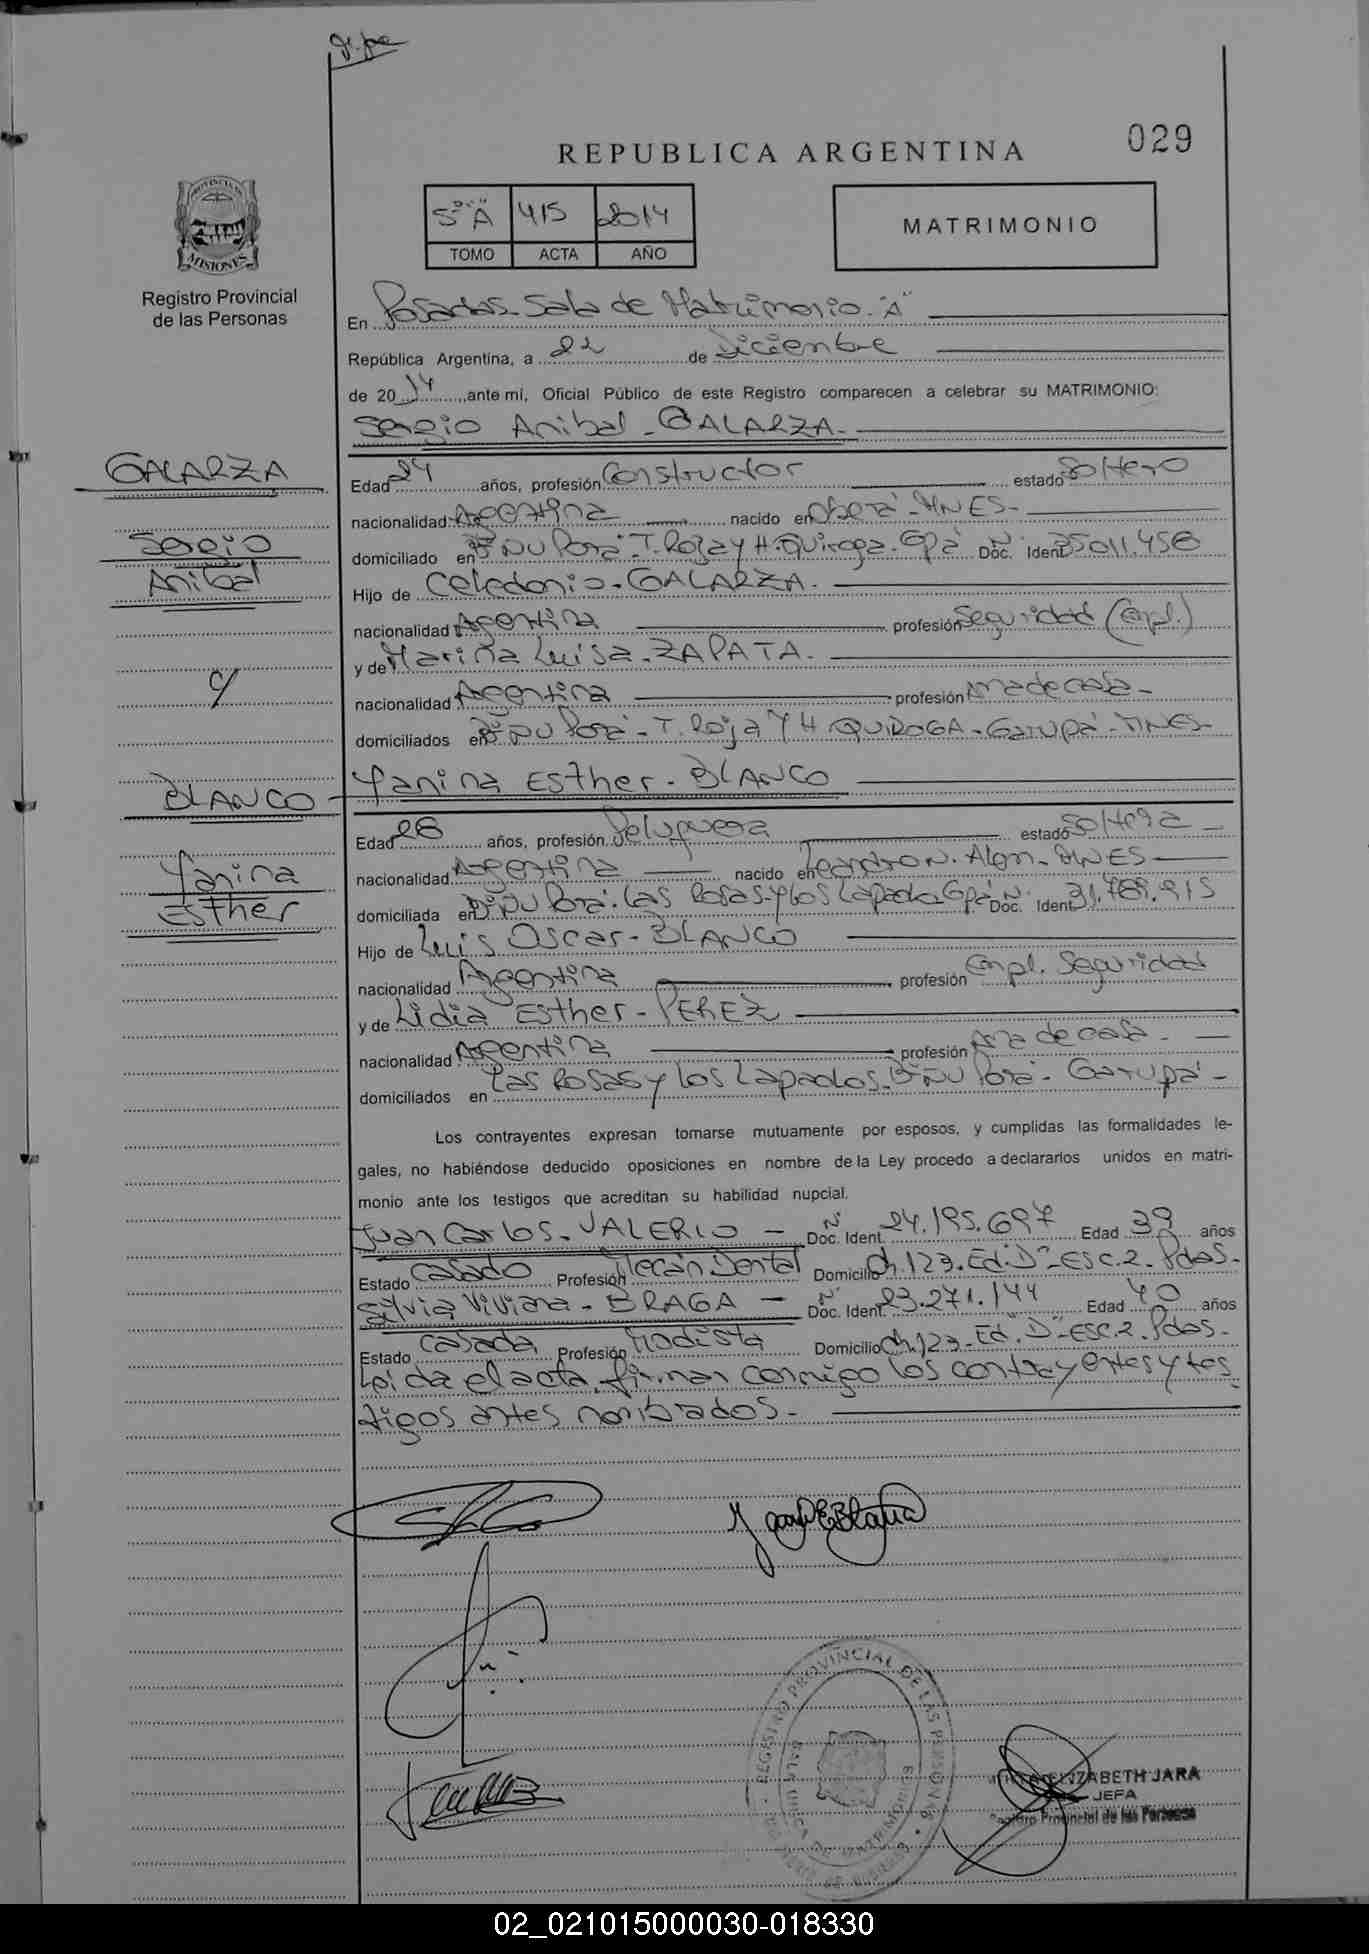 029
REPUBLICA ARGENTINA
5º "A" 415 2014
TOMO ACTA AÑO
MATRIMONIO
PROVINCIA DE
MISIONES
Registro Provincial
de las Personas
En Posadas - Sala de Matrimonio - "A"
República Argentina, a 22 de Diciembre
de 2014, ante mi, Oficial Público de este Registro comparecen a celebrar su MATRIMONIO:
Sergio Anibal - GALARZA -
GALARZA
Sergio
Anibal
c/
BLANCO
Yanina
Esther
Edad 24 años, profesión Constructor estado Soltero
nacionalidad Argentina nacido en Oberá - MNES -
domiciliado en Bº Ñu Porá - T. Roja y H. Quiroga - Gpá Nº Doc. Ident. 35.011.456
Hijo de Celedonio - GALARZA -
nacionalidad Argentina profesión Seguridad (Empl.)
y de Marina Luisa - ZAPATA -
nacionalidad Argentina profesión Ama de casa -
domiciliados en Bº Ñu Porá - T. Roja y H. QUIROGA - Garupá - MNES -
Yanina Esther - BLANCO
Edad 28 años, profesión Peluquera estado Soltera -
nacionalidad Argentina nacido en Leandro N. Alem - MNES
domiciliada en Bº Ñu Porá - Las Rosas y los Lapachos Gpá Nº Doc. Ident. 31.789.915
Hijo de Luis Oscar - BLANCO
nacionalidad Argentina profesión Empl. Seguridad
y de Lidia Esther - PEREZ
nacionalidad Argentina profesión Ama de casa -
domiciliados en Las Rosas y los Lapachos - Bº Ñu Porá - Garupá -
Los contrayentes expresan tomarse mutuamente por esposos, y cumplidas las formalidades le-
gales, no habiéndose deducido oposiciones en nombre de la Ley procedo a declararlos unidos en matri-
monio ante los testigos que acreditan su habilidad nupcial.
Juan Carlos - VALERIO - Nº Doc. Ident. 24.195.697 Edad 39 años
Estado Casado Profesión Mecán Dental Domicilio Ch. 123 - Ed. "D" - ESC. 2 - Pdas -
Silvia Viviana - BRAGA - Nº Doc. Ident. 23.271.144 Edad 40 años
Estado Casada Profesión Modista Domicilio Ch. 123 - Ed. "D" - ESC. 2 - Pdas -
Leida el acta, firman conmigo los contrayentes y tes-
tigos antes nombrados -
REGISTRO PROVINCIAL DE LAS PERSONAS
ELIZABETH JARA
JEFA
Registro Provincial de las Personas
02_021015000030-018330